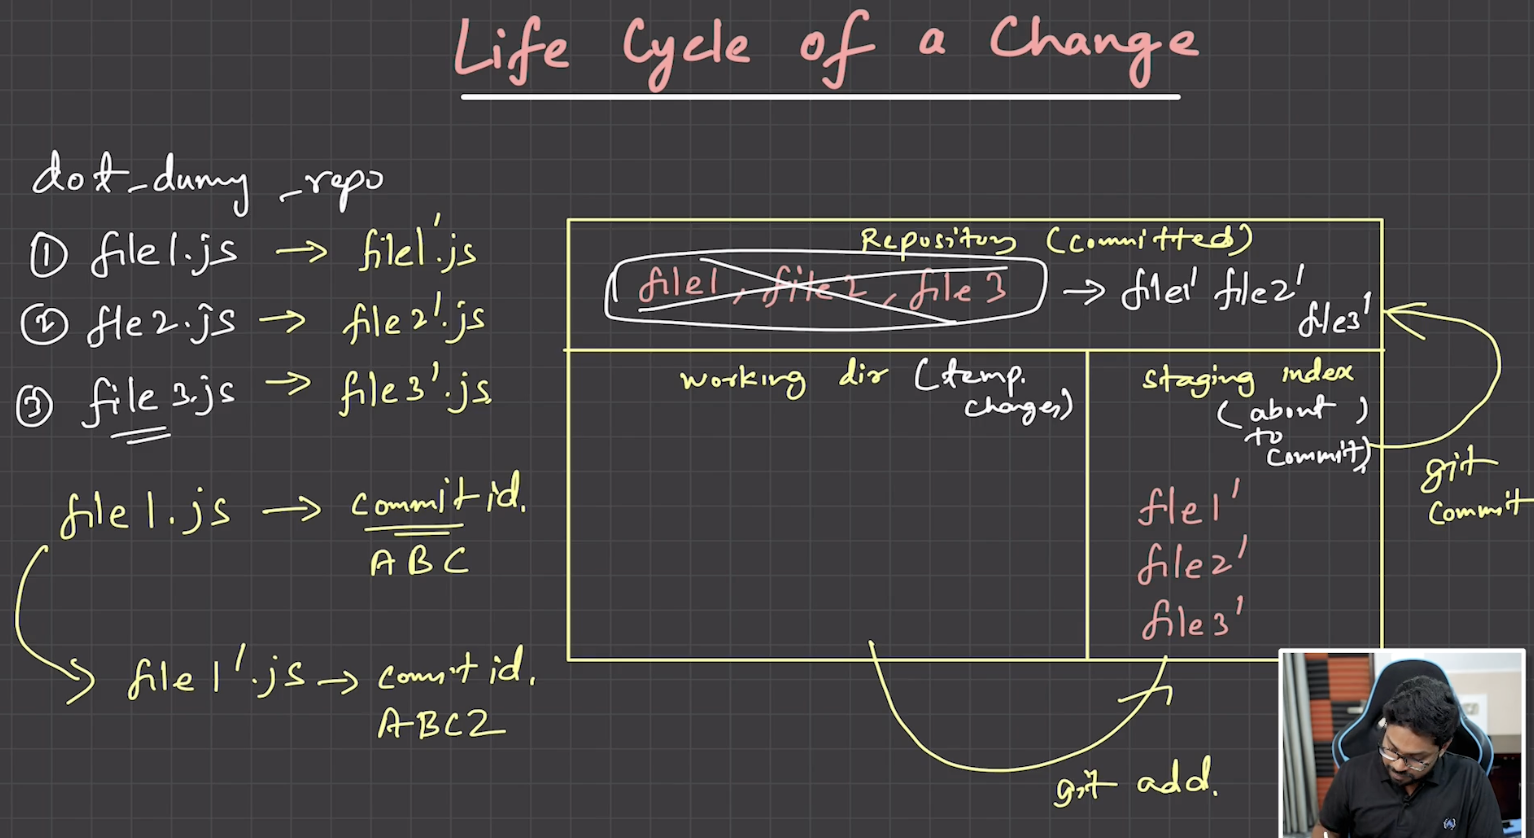 Life Cycle of a Change
dot_dumy_repo
① file1.js → file1'.js
② file2.js → file2'.js
③ file3.js → file3'.js
file1.js → commit id.
ABC
file1'.js → commit id.
ABC2
Repository (committed)
file1, file2, file3 → file1' file2'
file3'
working dir (temp.
changes)
staging index
(about
to
commit)
file1'
file2'
file3'
git
commit
git add.